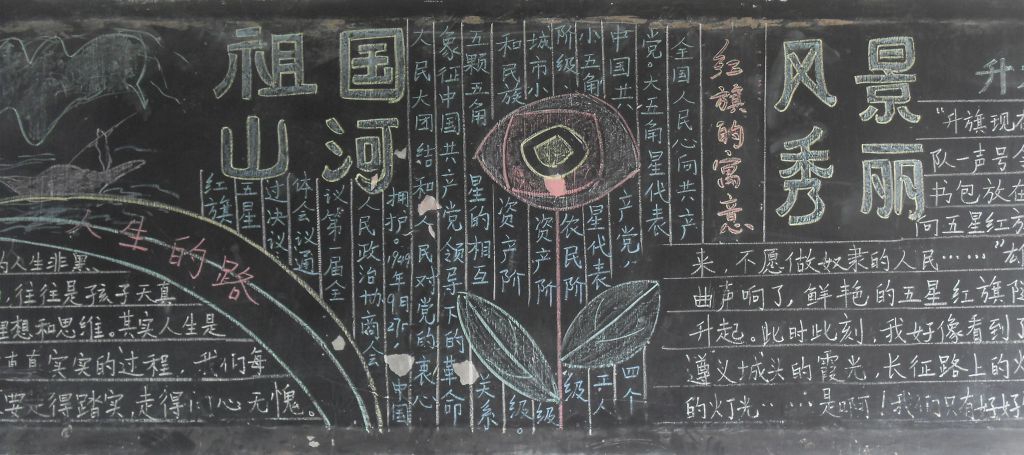 祖国
山河
人生的路
人生非黑
,往往是孩子天真
理想和思维。其实人生是
实实的过程,我们每
要走得踏实,走得问心无愧。
红旗的寓意
全国人民心向共产
党。大五角星代表
中国共产党,四个
小五角星代表工人
阶级、农民阶级
城市小资产阶级
和民族资产阶级。
五颗五角星的相互关系
象征中国共产党领导下的革命
人民大团结和人民对党的衷心
拥护。1949年9月27,中国
人民政治协商会
议第一届全
体会议通
过决议
五星
红旗
风景
秀丽
升
“升旗现在
队一声号
书包放在
向五星红旗
来,不愿做奴隶的人民……”
曲声响了,鲜艳的五星红旗
升起。此时此刻,我好像看到了
遵义城头的霞光,长征路上的
的灯光……是啊!我们只有好好